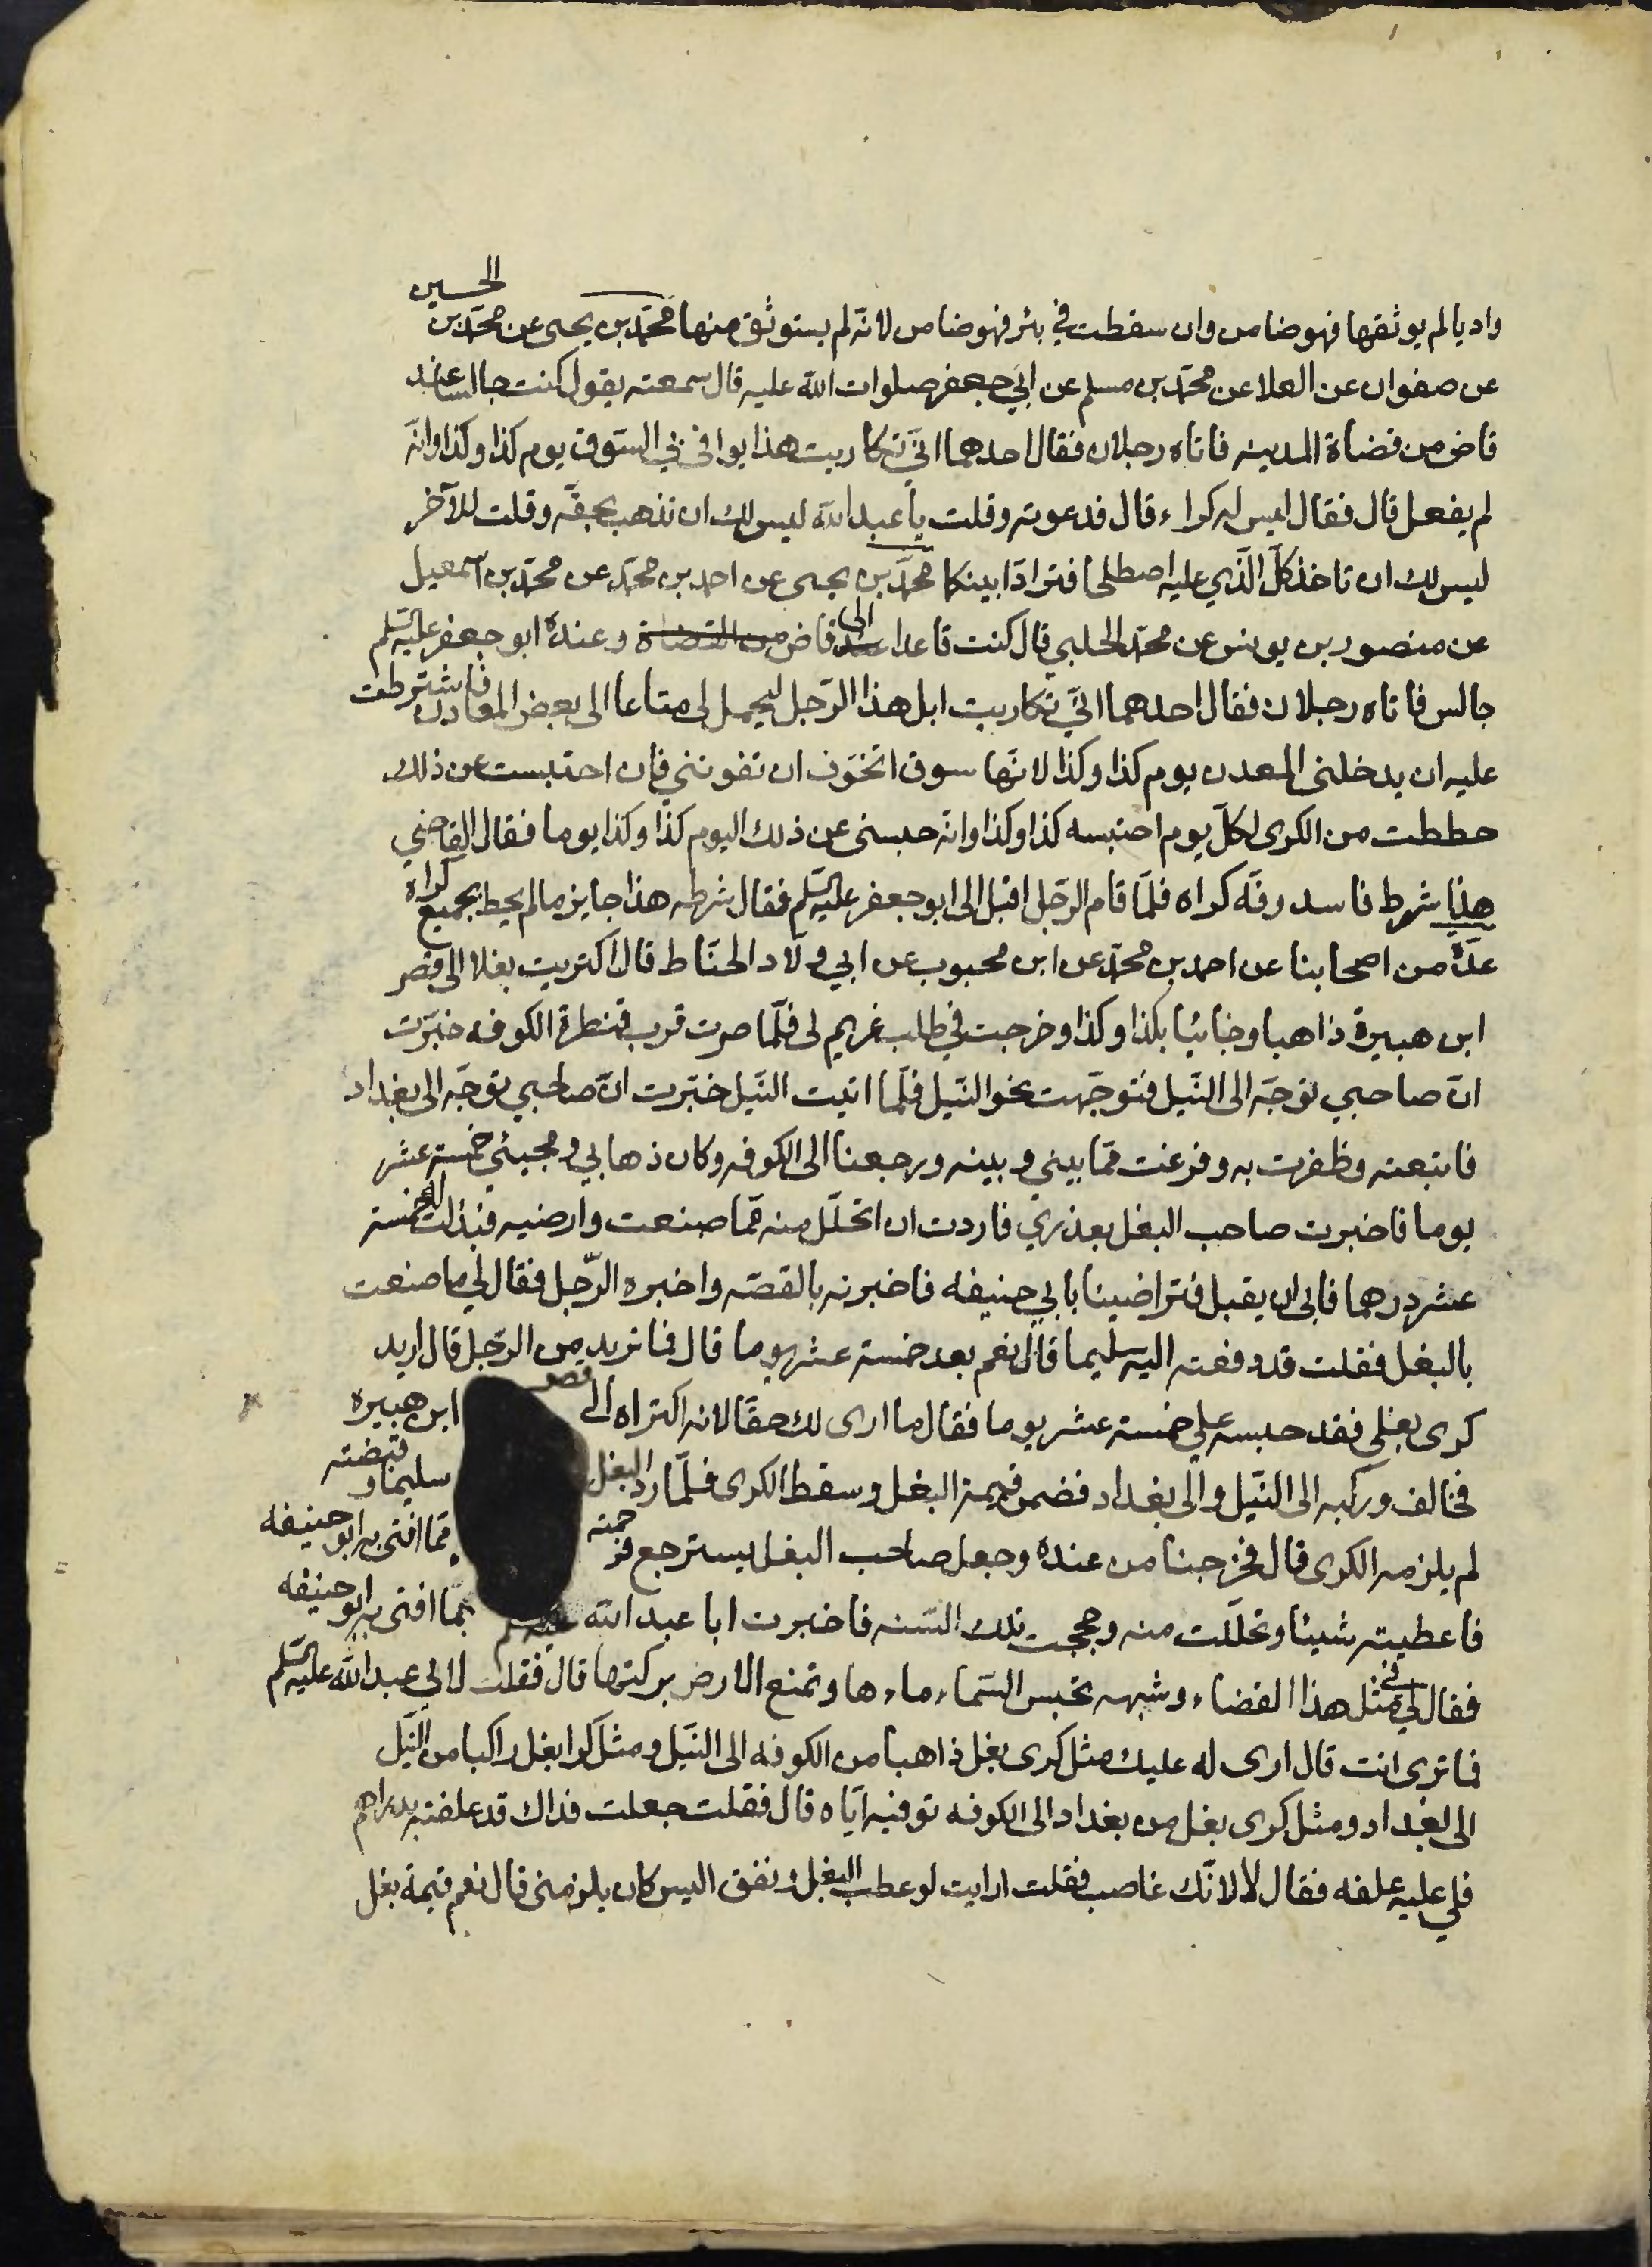 الحسين
واديا لم يوثقها فهو ضامن وان سقطت في بئر فهو ضامن لانه لم يستوثق منها محمّد بن يحيى عن محمّد بن
عن صفوان عن العلا عن محمّد بن مسلم عن ابي جعفر صلوات الله عليه قال سمعته يقول كنت جالسا عند
قاض من قضاة المدينه فاتاه رجلان فقال احدهما انّي تكاريت هذا يوافى بي السّوق يوم كذا وكذا وانّه
لم يفعل قال فقال ليس له كراء قال فدعوته وقلت يا عبد الله ليس لك ان تذهب بحقّه وقلت للآخر
ليس لك ان تاخذ كلّ الّذي عليه اصطلحا فترادّا بينكما محمّد بن يحيى عن احمد بن محمّد عن محمّد بن اسمعيل
عن منصور بن يونس عن محمّد الحلبي قال كنت قاعدا عند الى قاض من القضاة وعنده ابو جعفر عليه السّلم
جالس فاتاه رجلان فقال احدهما انّي تكاريت ابل هذا الرّجل ليحمل لي متاعا الى بعض المعادن فاشترطت
عليه ان يدخلنى المعدن يوم كذا وكذا لانّها سوق اتخوّف ان تفوتني فان احتبست عن ذلك
حططت من الكرى لكلّ يوم احتبسه كذا وكذا وانّه حبسنى عن ذلك اليوم كذا وكذا يوما فقال القاضي
هذا شرط فاسد وفّه كراه فلمّا قام الرّجل اقبل الى ابو جعفر عليه السّلم فقال شرطه هذا جايز ما لم يحط بجميع كراه
عدّة من اصحابنا عن احمد بن محمّد عن ابن محبوب عن ابي ولّاد الحنّاط قال اكتريت بغلا الى قصر
ابن هبيرة ذاهبا وجائيا بكذا وكذا وخرجت في طلب غريم لى فلمّا صرت قرب قنطرة الكوفه خبّرت
انّ صاحبي توجّه الى النّيل فتوجّهت نحو النّيل فلمّا اتيت النّيل خبّرت انّ صاحبي توجّه الى بغداد
فاتبعته وظفرت به وفرغت ممّا بيني وبينه ورجعنا الى الكوفه وكان ذهابي ومجيئي خمسة عشر
يوما فاخبرت صاحب البغل بعذري فاردت ان اتحلّل منه ممّا صنعت وارضيه فبذلت له خمسة
عشر درهما فابى ان يقبل فتراضينا بابي حنيفه فاخبرته بالقصّه واخبره الرّجل فقال لي ما صنعت
بالبغل فقلت قد دفعته اليه سليما قال نعم بعد خمسة عشر يوما قال فما تريد من الرّجل قال اريد
كرى بغلى فقد حبسه علي خمسة عشر يوما فقال ما ارى لك حقّا لانه اكتراه الى قصر ابن هبيره
فخالف وركبه الى النّيل والى بغداد فضمن قيمة البغل وسقط الكرى فلمّا ردّ البغل سليما وقبضته
لم يلزمه الكرى قال فخرجنا من عنده وجعل صاحب البغل يسترجع فرحمته ممّا افتى به ابو حنيفه
فاعطيته شيئا وتحلّلت منه وحججت تلك السّنه فاخبرت ابا عبد الله بما افتى به ابو حنيفه
فقال لي في مثل هذا القضاء وشبهه تحبس السّماء ماءها وتمنع الارض بركتها قال فقلت لابي عبد الله عليه السّلم
فما ترى انت قال ارى له عليك مثل كرى بغل ذاهبا من الكوفه الى النّيل ومثل كرا بغل راكبا من النّيل
الى بغداد ومثل كرى بغل من بغداد الى الكوفه توفيه ايّاه قال فقلت جعلت فداك قد علفته بدراهم
فلي عليه علفه فقال لا لانّك غاصب فقلت ارايت لو عطب البغل ونفق اليس كان يلزمنى قال نعم قيمة بغل